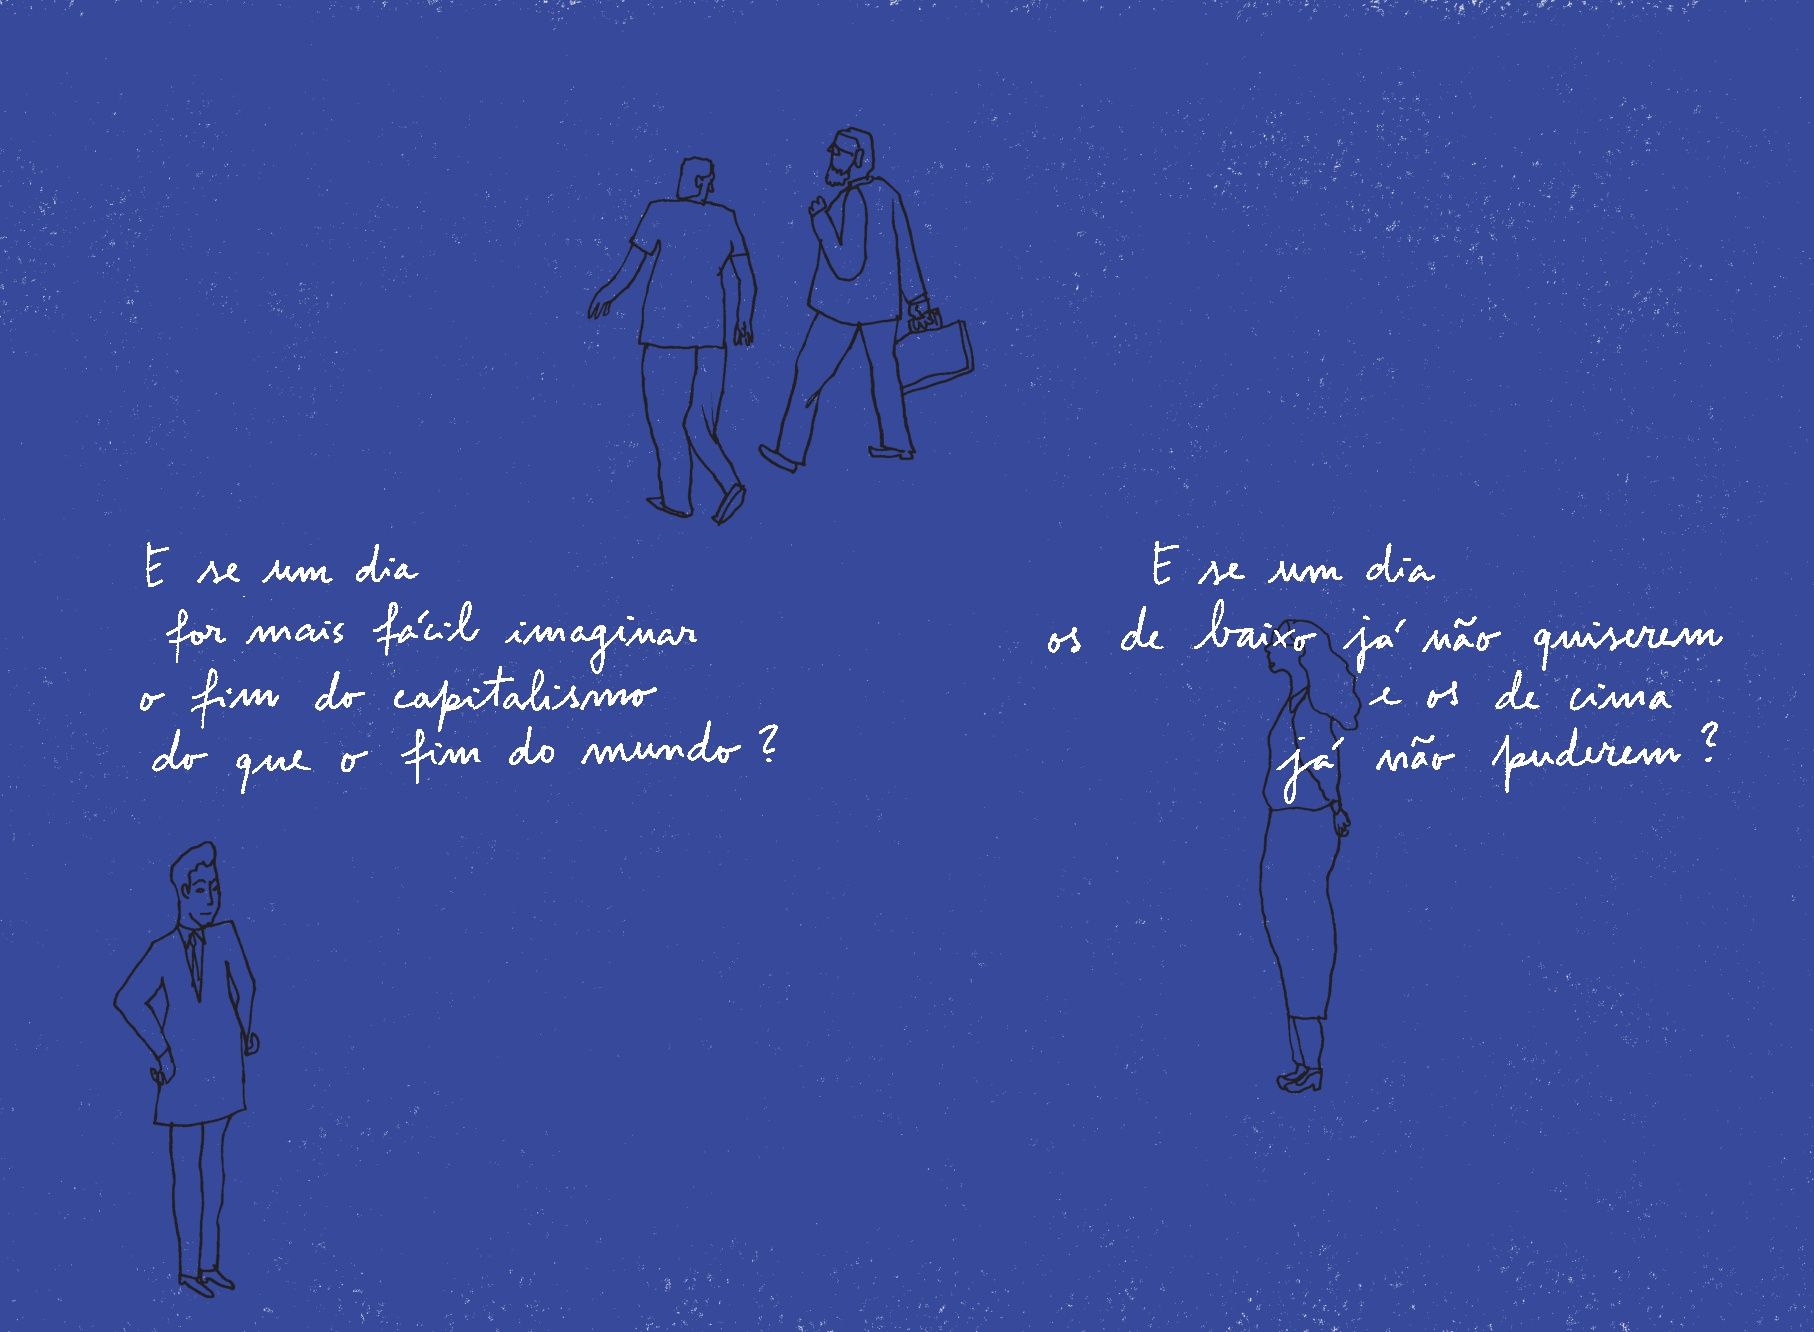 E se um dia
for mais fácil imaginar
o fim do capitalismo
do que o fim do mundo?
E se um dia
os de baixo já não quiserem
e os de cima
já não puderem?